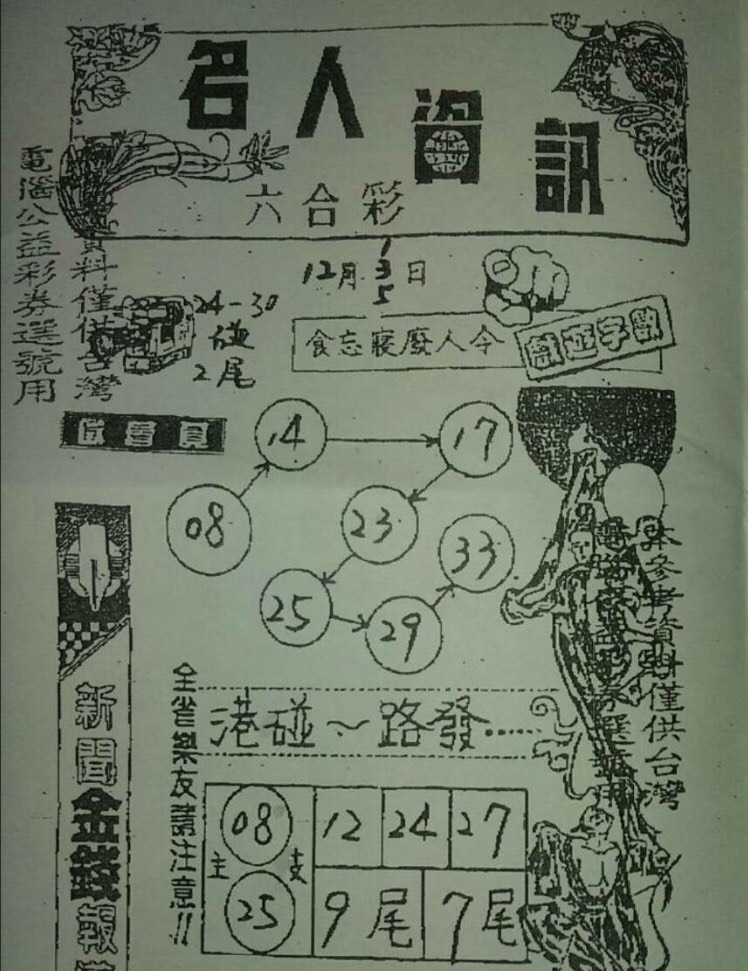 名人資訊
六合彩
12月 1 3 5 日
24-30
碰
2尾
食忘寢廢人令
數字遊戲
電腦公益彩券選號用
資料僅供台灣
14
17
08
23
33
25
29
新聞金錢報
全省樂友請注意!!
港碰~路發.....
主 08 25 支
12 24 27
9尾 7尾
本參考資料僅供台灣